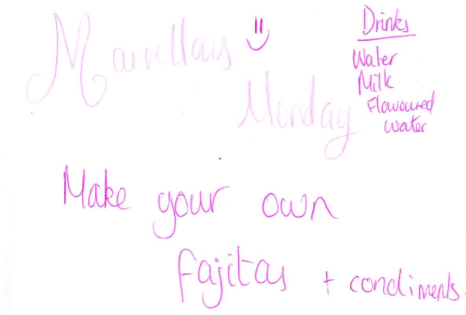 Marvellous
Monday
Drinks
Water
Milk
Flavoured
water
Make your own
fajitas + condiments.